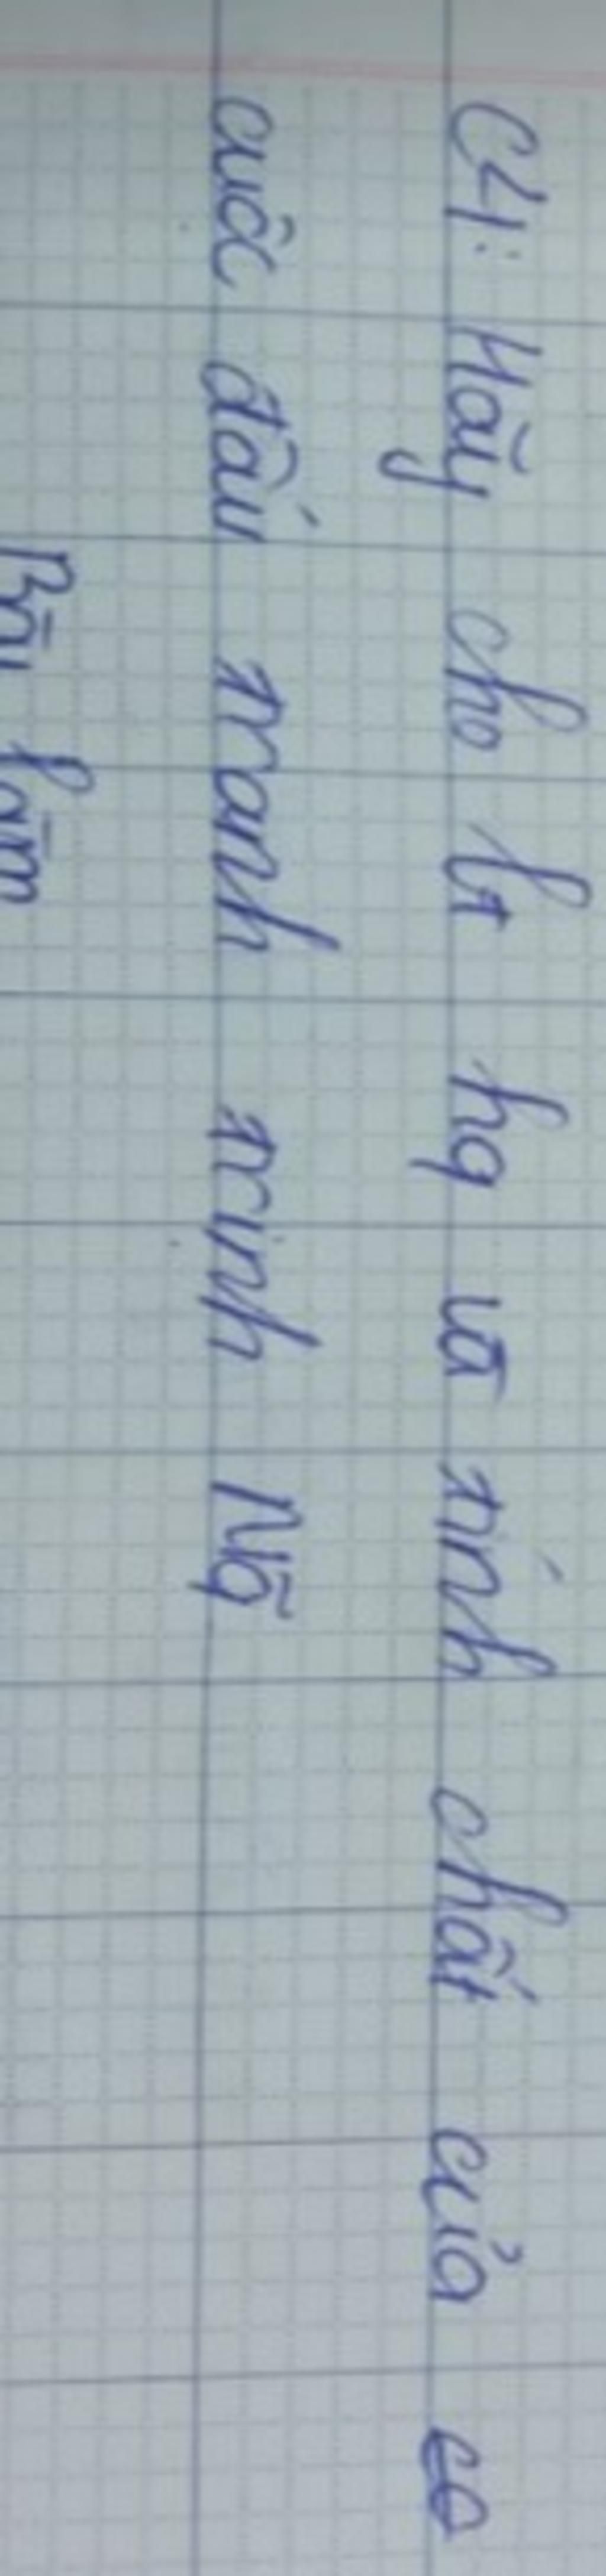 C4: Hãy cho kq hq và tính chất của
cuộc đấu tranh trinh Ng
Bài làm